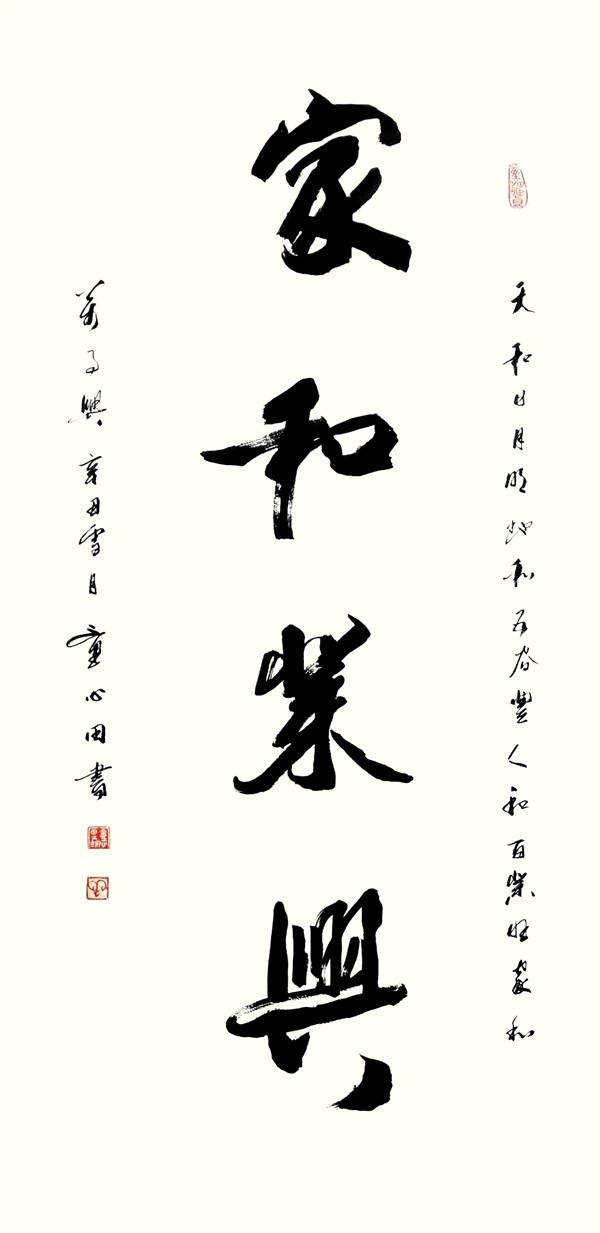 天和日月明地和五谷豐人和百業旺家和
家和業興
萬事興 辛丑雪月 童心田書